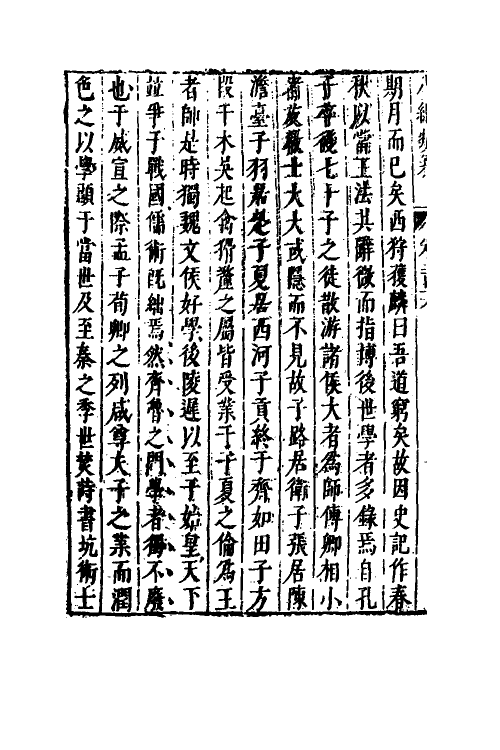 期月而已矣西狩獲麟曰吾道窮矣故因史記作春
秋以當王法其辭微而指博後世學者多錄焉自孔
子卒後七十子之徒散游諸侯大者爲師傅卿相小
者友教士大夫或隱而不見故子路居衛子張居陳
澹臺子羽居楚子夏居西河子貢終于齊如田子方
段干木吳起禽滑釐之屬皆受業于子夏之倫爲王
者師是時獨魏文侯好學後陵遲以至于始皇天下
並爭于戰國儒術旣絀焉然齊魯之門學者獨不廢
也于威宣之際孟子荀卿之列咸尊夫子之業而潤
色之以學顯于當世及至秦之季世焚詩書坑術士